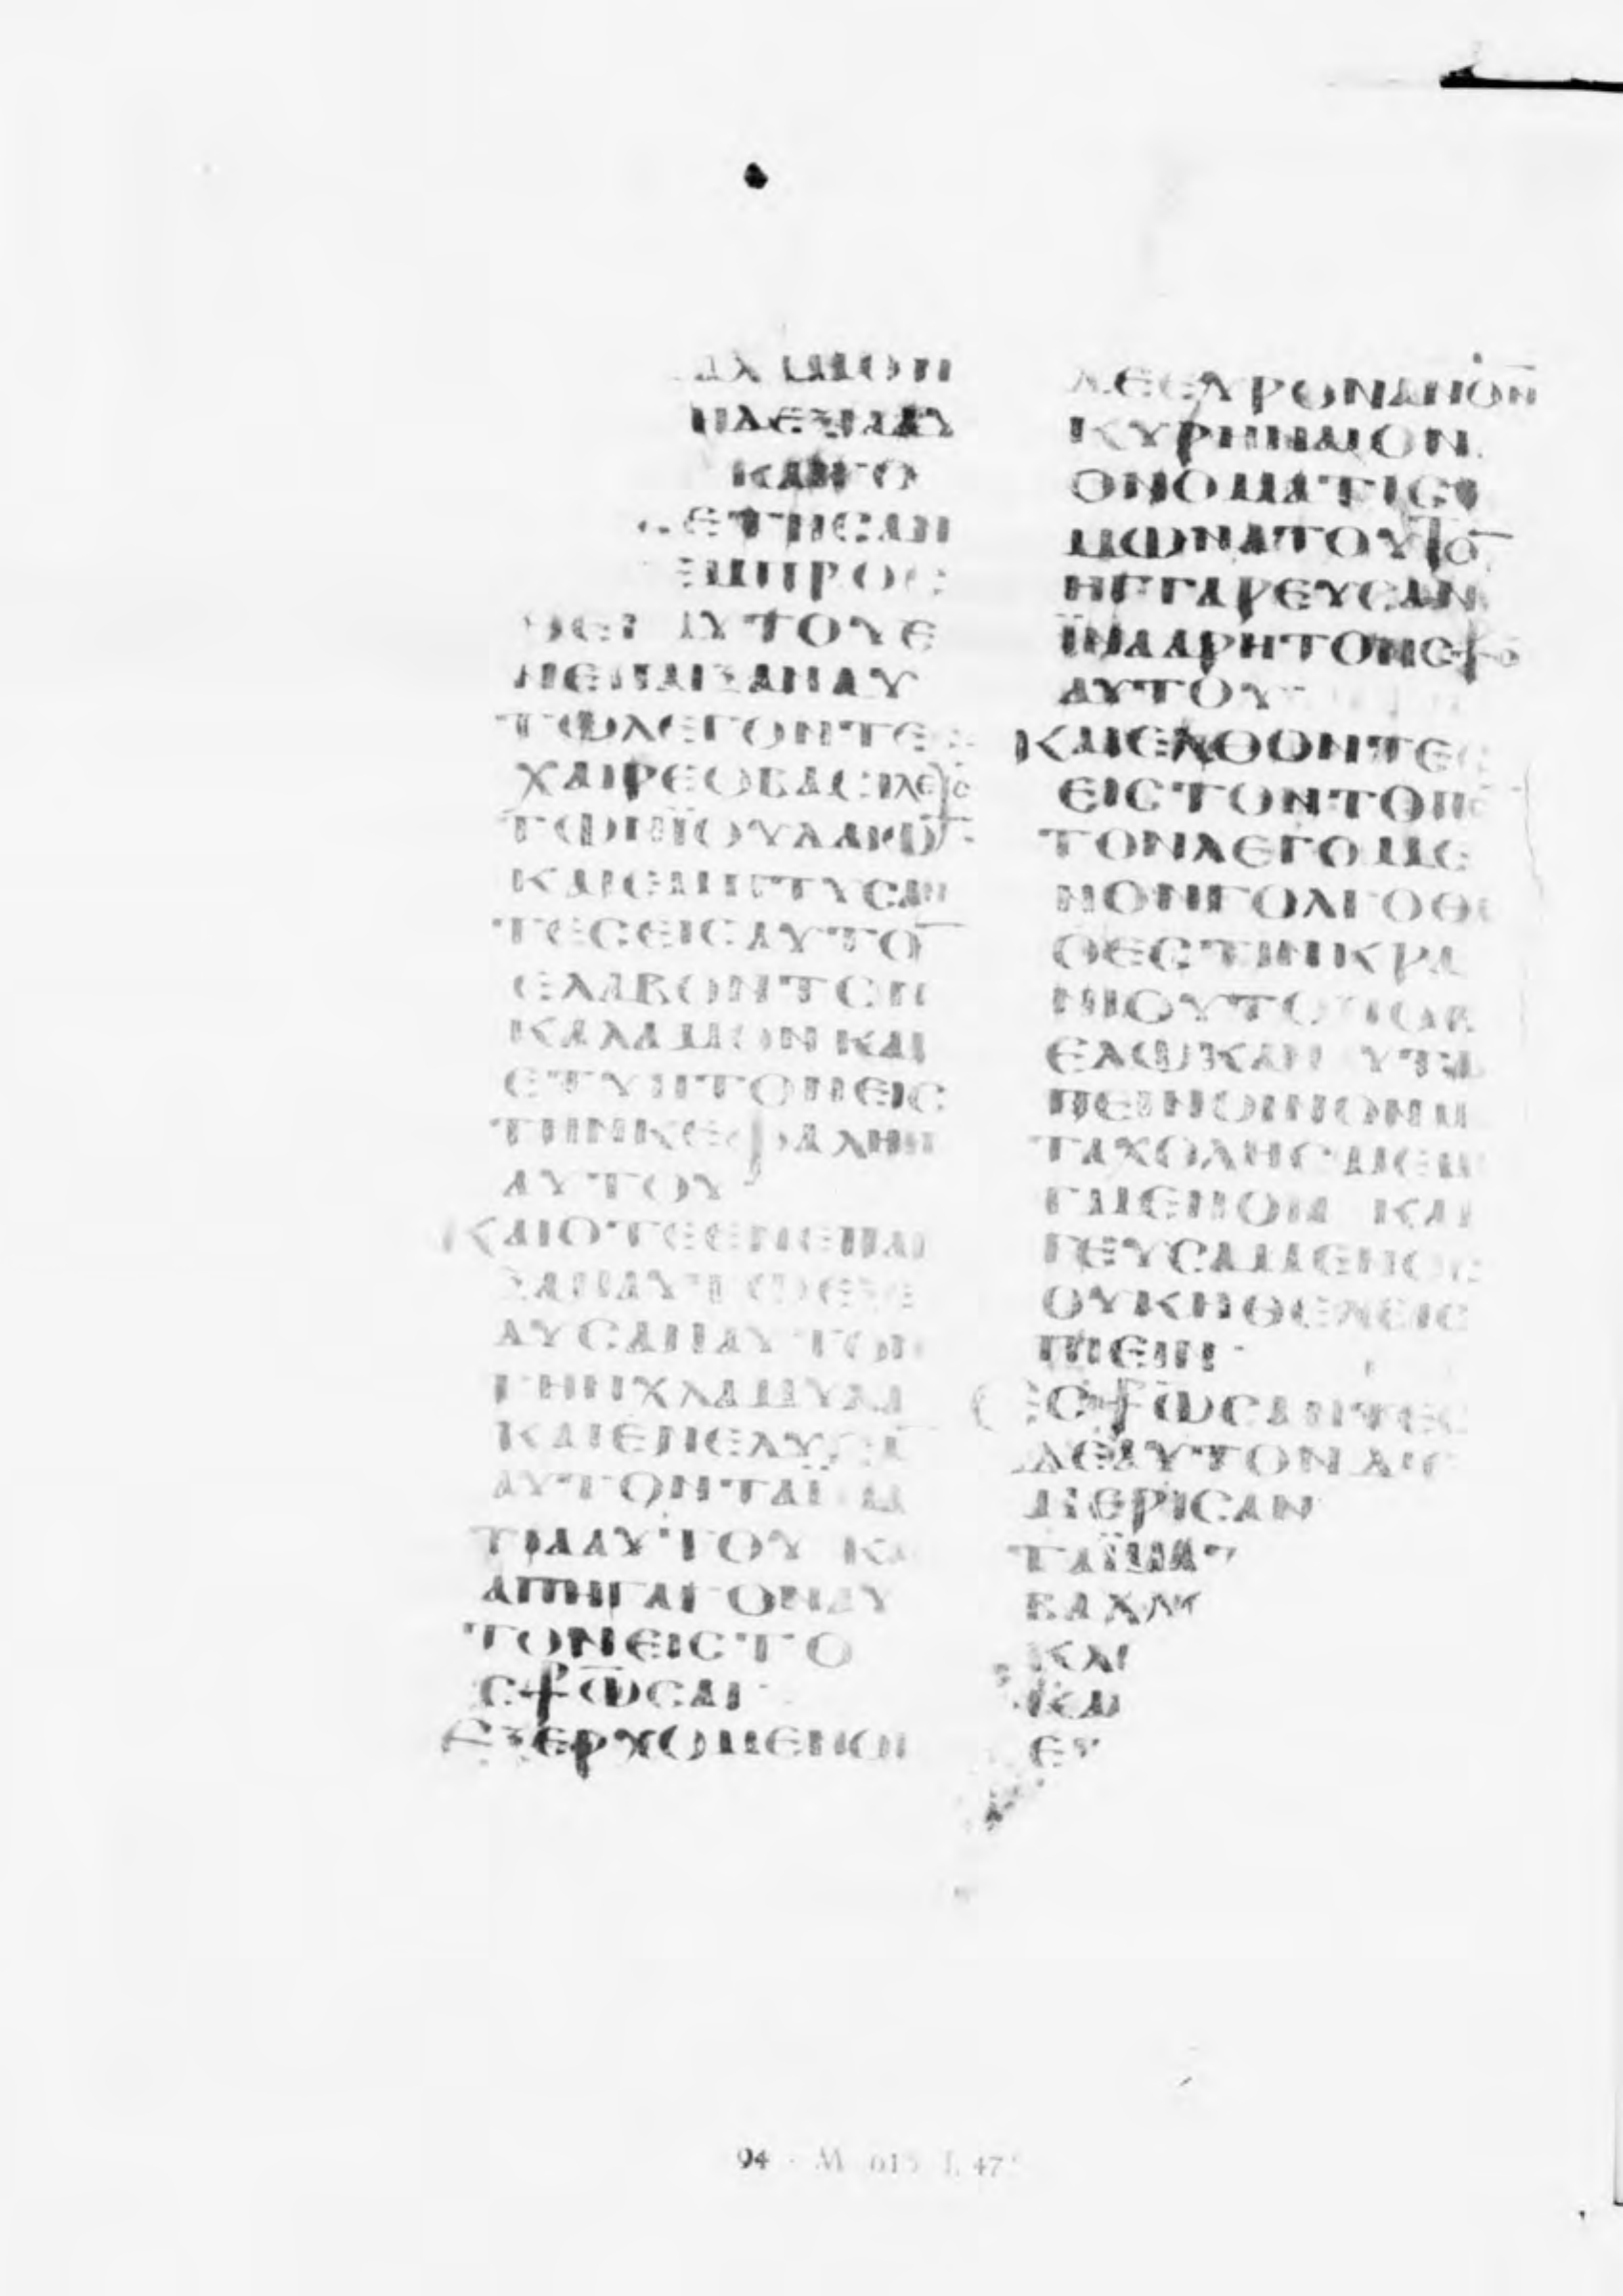 ΚΑΙ ΓΟ
ΕΤΗСΑΝ
ΕΜΠΡΟС
ΘΕΝ ΑΥΤΟΥ Ε
ΝΕΠΑΙΞΑΝ ΑΥ
ΤΩ ΛΕΓΟΝΤΕС
ΧΑΙΡΕ Ο ΒΑСΙΛΕΥС
ΤΩΝ ΪΟΥΔΑΙΩ̅
ΚΑΙ ΕΜΠΤΥСΑΝ
ΤΕС ΕΙС ΑΥΤΟ̅
ΕΛΑΒΟΝ ΤΟΝ
ΚΑΛΑΜΟΝ ΚΑΙ
ΕΤΥΠΤΟΝ ΕΙС
ΤΗΝ ΚΕΦΑΛΗΝ
ΑΥΤΟΥ
ΚΑΙ ΟΤΕ ΕΝΕΠΑΙ
ΞΑΝ ΑΥΤΩ ΕΞΕ
ΔΥСΑΝ ΑΥΤΟΝ
ΤΗΝ ΧΛΑΜΥΔΑ
ΚΑΙ ΕΝΕΔΥСΑ̅
ΑΥΤΟΝ ΤΑ ΪΜΑ
ΤΙΑ ΑΥΤΟΥ ΚΑΙ
ΑΠΗΓΑΓΟΝ ΑΥ
ΤΟΝ ΕΙС ΤΟ
С⳨Ω̅СΑΙ
ΕΞΕΡΧΟΜΕΝΟΙ
ΔΕ ΕΥΡΟΝ ΑΝΟ̅Ν
ΚΥΡΗΝΑΙΟΝ
ΟΝΟΜΑΤΙ СΙ
ΜΩΝΑ ΤΟΥΤΟ̅
ΗΓΓΑΡΕΥСΑΝ
ΪΝΑ ΑΡΗ ΤΟΝ С⳨Ο̅
ΑΥΤΟΥ
ΚΑΙ ΕΛΘΟΝΤΕС
ΕΙС ΤΟΝ ΤΟΠΟ̅
ΤΟΝ ΛΕΓΟΜΕ
ΝΟΝ ΓΟΛΓΟΘΑ
Ο ΕСΤΙΝ ΚΡΑ
ΝΙΟΥ ΤΟΠΟС
ΕΔΩΚΑΝ ΑΥΤΩ
ΠΕΙΝ ΟΙΝΟΝ ΜΕ
ΤΑ ΧΟΛΗС ΜΕΜΙ
ΓΜΕΝΟΝ ΚΑΙ
ΓΕΥСΑΜΕΝΟС
ΟΥΚ ΗΘΕΛΕΝ
ΠΙΕΙΝ
С⳨Ω̅СΑΝΤΕС
ΔΕ ΑΥΤΟΝ ΔΙΕ
ΜΕΡΙСΑΝ
ΤΑ ΪΜΑΤ
ΒΑΛΛ
ΚΑΙ